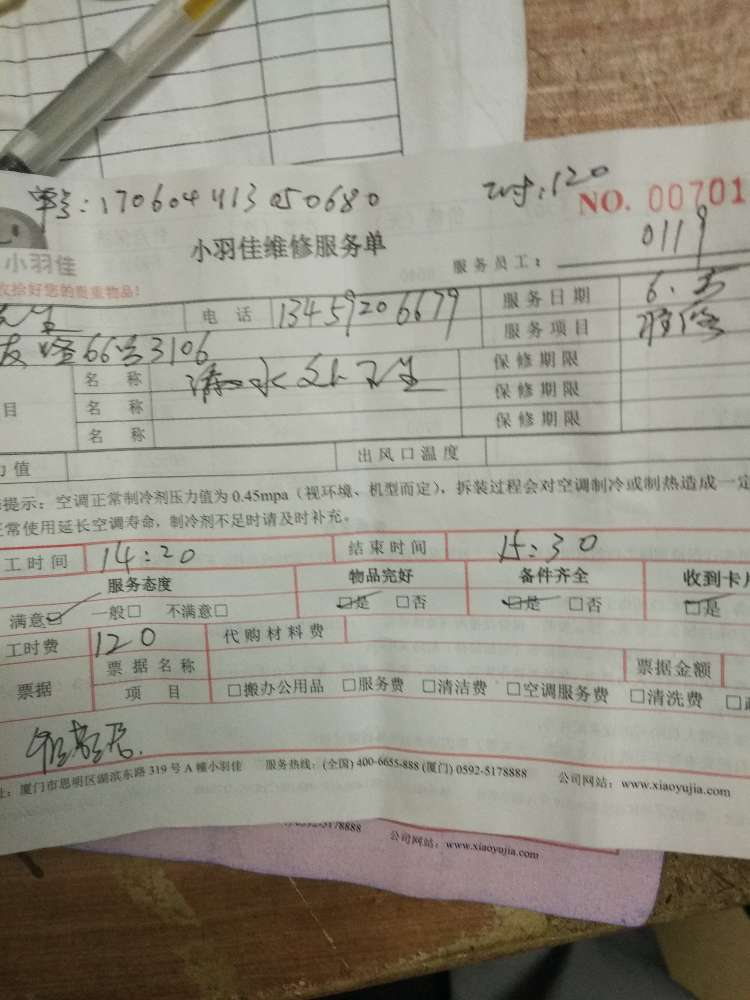 单号:170604413050680
工时:120
NO. 00701
小羽佳
小羽佳维修服务单
服务员工: 0119
收拾好您的贵重物品!
电话 13459206679 服务日期 6.
66号3106 服务项目 维修
目 名称 保修期限
名称 保修期限
名称 保修期限
力值 出风口温度
提示:空调正常制冷剂压力值为0.45mpa(视环境、机型而定),拆装过程会对空调制冷或制热造成一定
正常使用延长空调寿命,制冷剂不足时请及时补充。
工时间 14:20 结束时间 15:30
服务态度 物品完好 备件齐全 收到卡片
满意□ 一般□ 不满意□ □是 □否 □是 □否 □是
工时费 120 代购材料费
票据 票据名称 票据金额
项目 □搬办公用品 □服务费 □清洁费 □空调服务费 □清洗费 □
址:厦门市思明区湖滨东路319号A幢小羽佳 服务热线:(全国) 400-6655-888 (厦门) 0592-5178888 公司网站:www.xiaoyujia.com
0592-5178888 公司网站:www.xiaoyujia.com